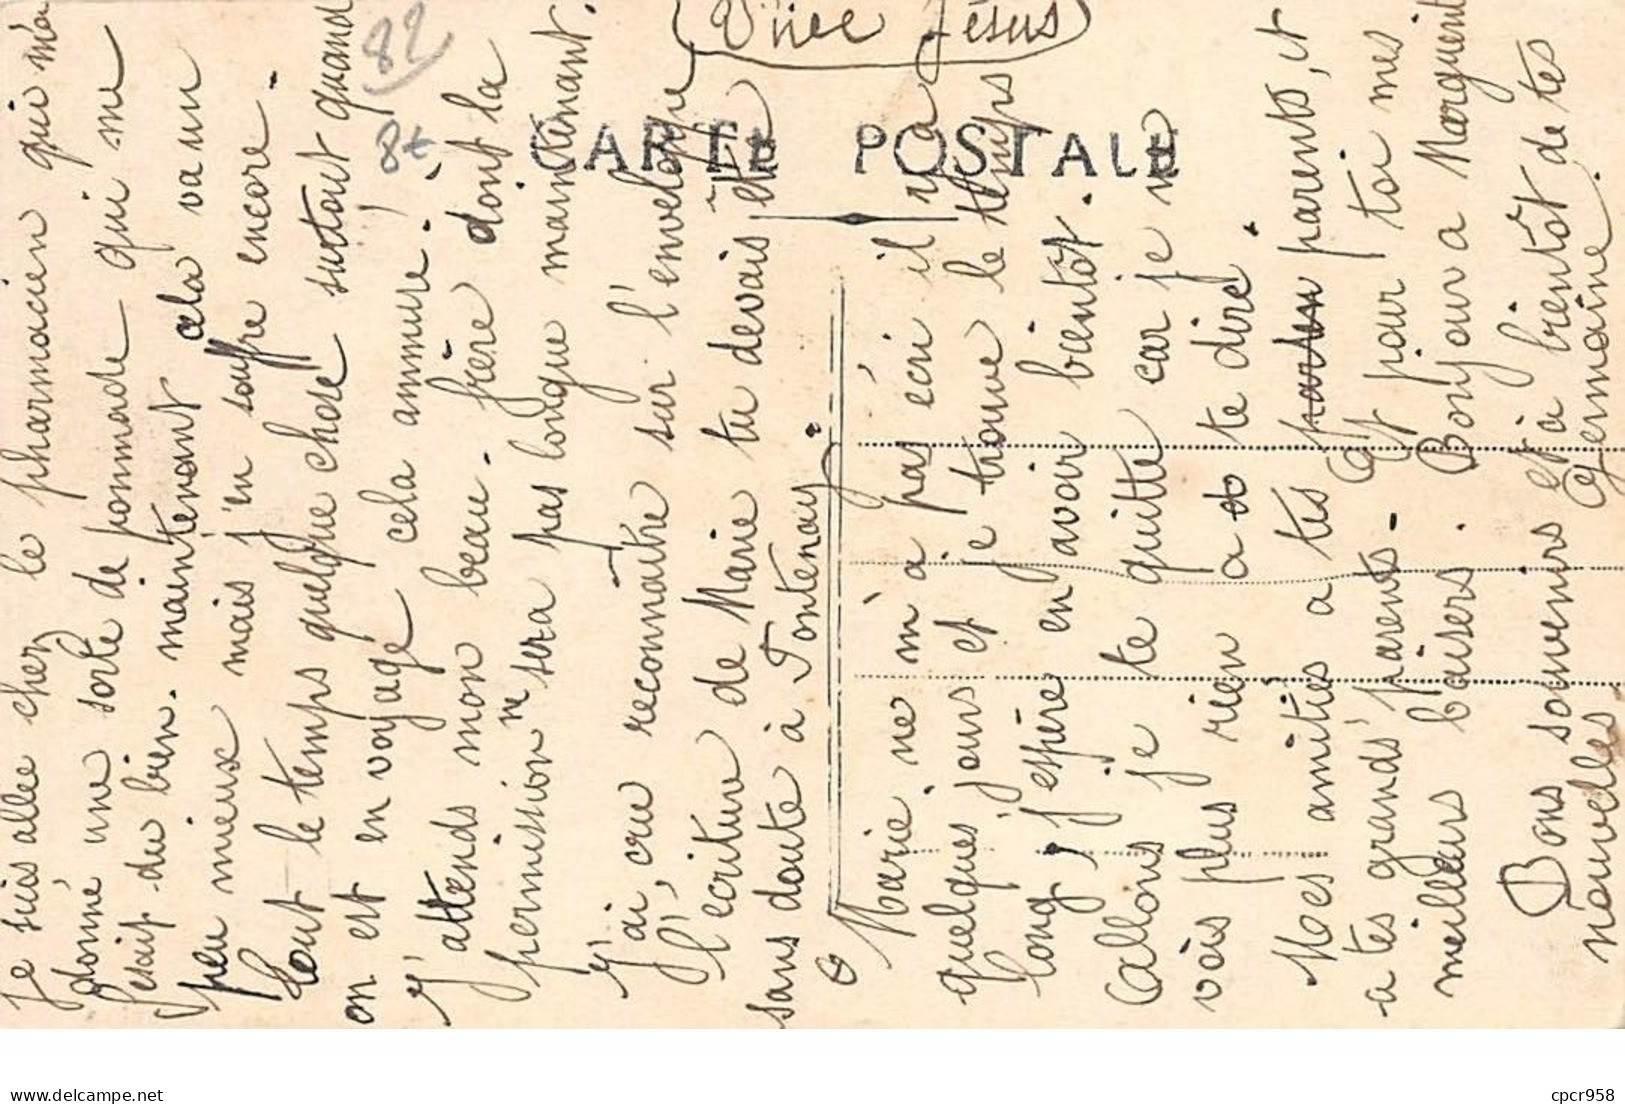 Vive Jésus
82
8t
CARTE POSTALE
Je suis allée chez le pharmacien qui m'a
donné une sorte de pommade qui me
fesait du bien. maintenant cela va un
peu mieux mais j'en souffre encore.
Tout le temps quelque chose surtout quand
on est en voyage cela ammure!
J'attends mon beau-frère dont la
permission ne sera pas longue maintenant.
J'ai cru reconnaitre sur l'enveloppe
l'ecriture de Marie tu devais être
sans doute à Fontenay.
Marie ne m'a pas écri il y a
quelques jours et je trouve le temps
long, j'espère en avoir bientôt.
Callons je te quitte car je ne
vois plus rien a te dire.
Mes amitiés a tes parents, et
a tes grands' parents - Et pour toi mes
meilleurs baisers. Bonjour a Marguerit
Bons souvenirs et à bientôt de tes
nouvelles Germaine.
delcampe.net
cpcr958